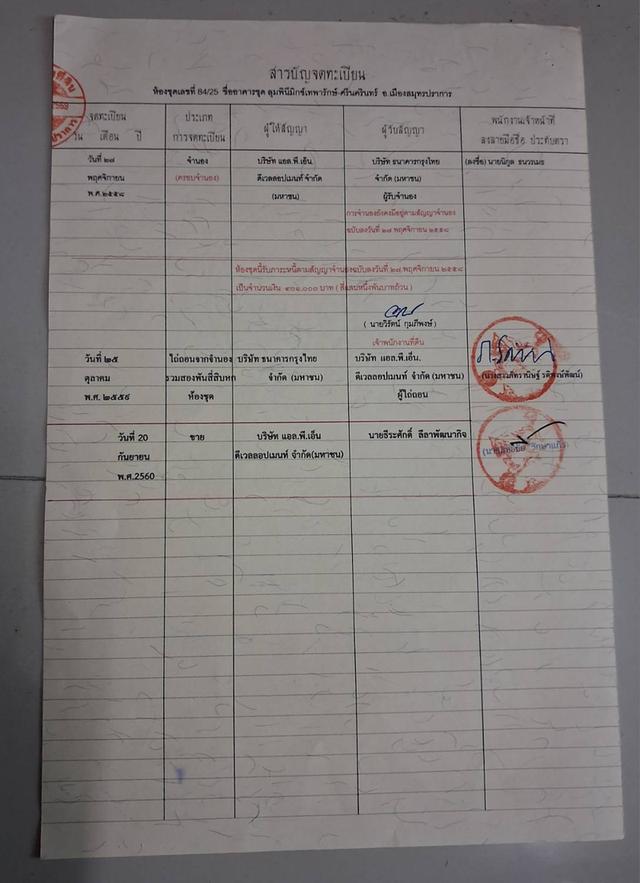 สารบัญจดทะเบียน
ห้องชุดเลขที่ 84/25 ชื่ออาคารชุด ลุมพินีมิกซ์เทพารักษ์-ศรีนครินทร์ อ.เมืองสมุทรปราการ
จดทะเบียน
วัน เดือน ปี
ประเภท
การจดทะเบียน
ผู้ให้สัญญา
ผู้รับสัญญา
พนักงานเจ้าหน้าที่
ลงลายมือชื่อ ประทับตรา
วันที่ ๒๗
พฤศจิกายน
พ.ศ.๒๕๕๘
จำนอง
(ครอบจำนอง)
บริษัท แอล.พี.เอ็น
ดีเวลลอปเมนท์ จำกัด
(มหาชน)
บริษัท ธนาคารกรุงไทย
จำกัด (มหาชน)
ผู้รับจำนอง
การจำนองยังคงมีอยู่ตามสัญญาจำนอง
ฉบับลงวันที่ ๒๗ พฤศจิกายน ๒๕๕๘
(ลงชื่อ) นายนิกูล
ห้องชุดนี้รับภาระหนี้ตามสัญญาจำนองฉบับลงวันที่ ๒๗ พฤศจิกายน ๒๕๕๘
เป็นจำนวนเงิน ๔๐๑,๐๐๐ บาท ( สี่แสนหนึ่งพันบาทถ้วน )
( นายวิรัตน์ กุมภีพงษ์ )
เจ้าพนักงานที่ดิน
วันที่ ๒๕
ตุลาคม
พ.ศ. ๒๕๕๙
ไถ่ถอนจากจำนอง
รวมสองพันสี่สิบหก
ห้องชุด
บริษัท ธนาคารกรุงไทย
จำกัด (มหาชน)
บริษัท แอล.พี.เอ็น.
ดีเวลลอปเมนท์ จำกัด (มหาชน)
ผู้ไถ่ถอน
วันที่ 20
กันยายน
พ.ศ.2560
ขาย
บริษัท แอล.พี.เอ็น
ดีเวลลอปเมนท์ จำกัด(มหาชน)
นายธีระศักดิ์ ลีลาพัฒนากิจ